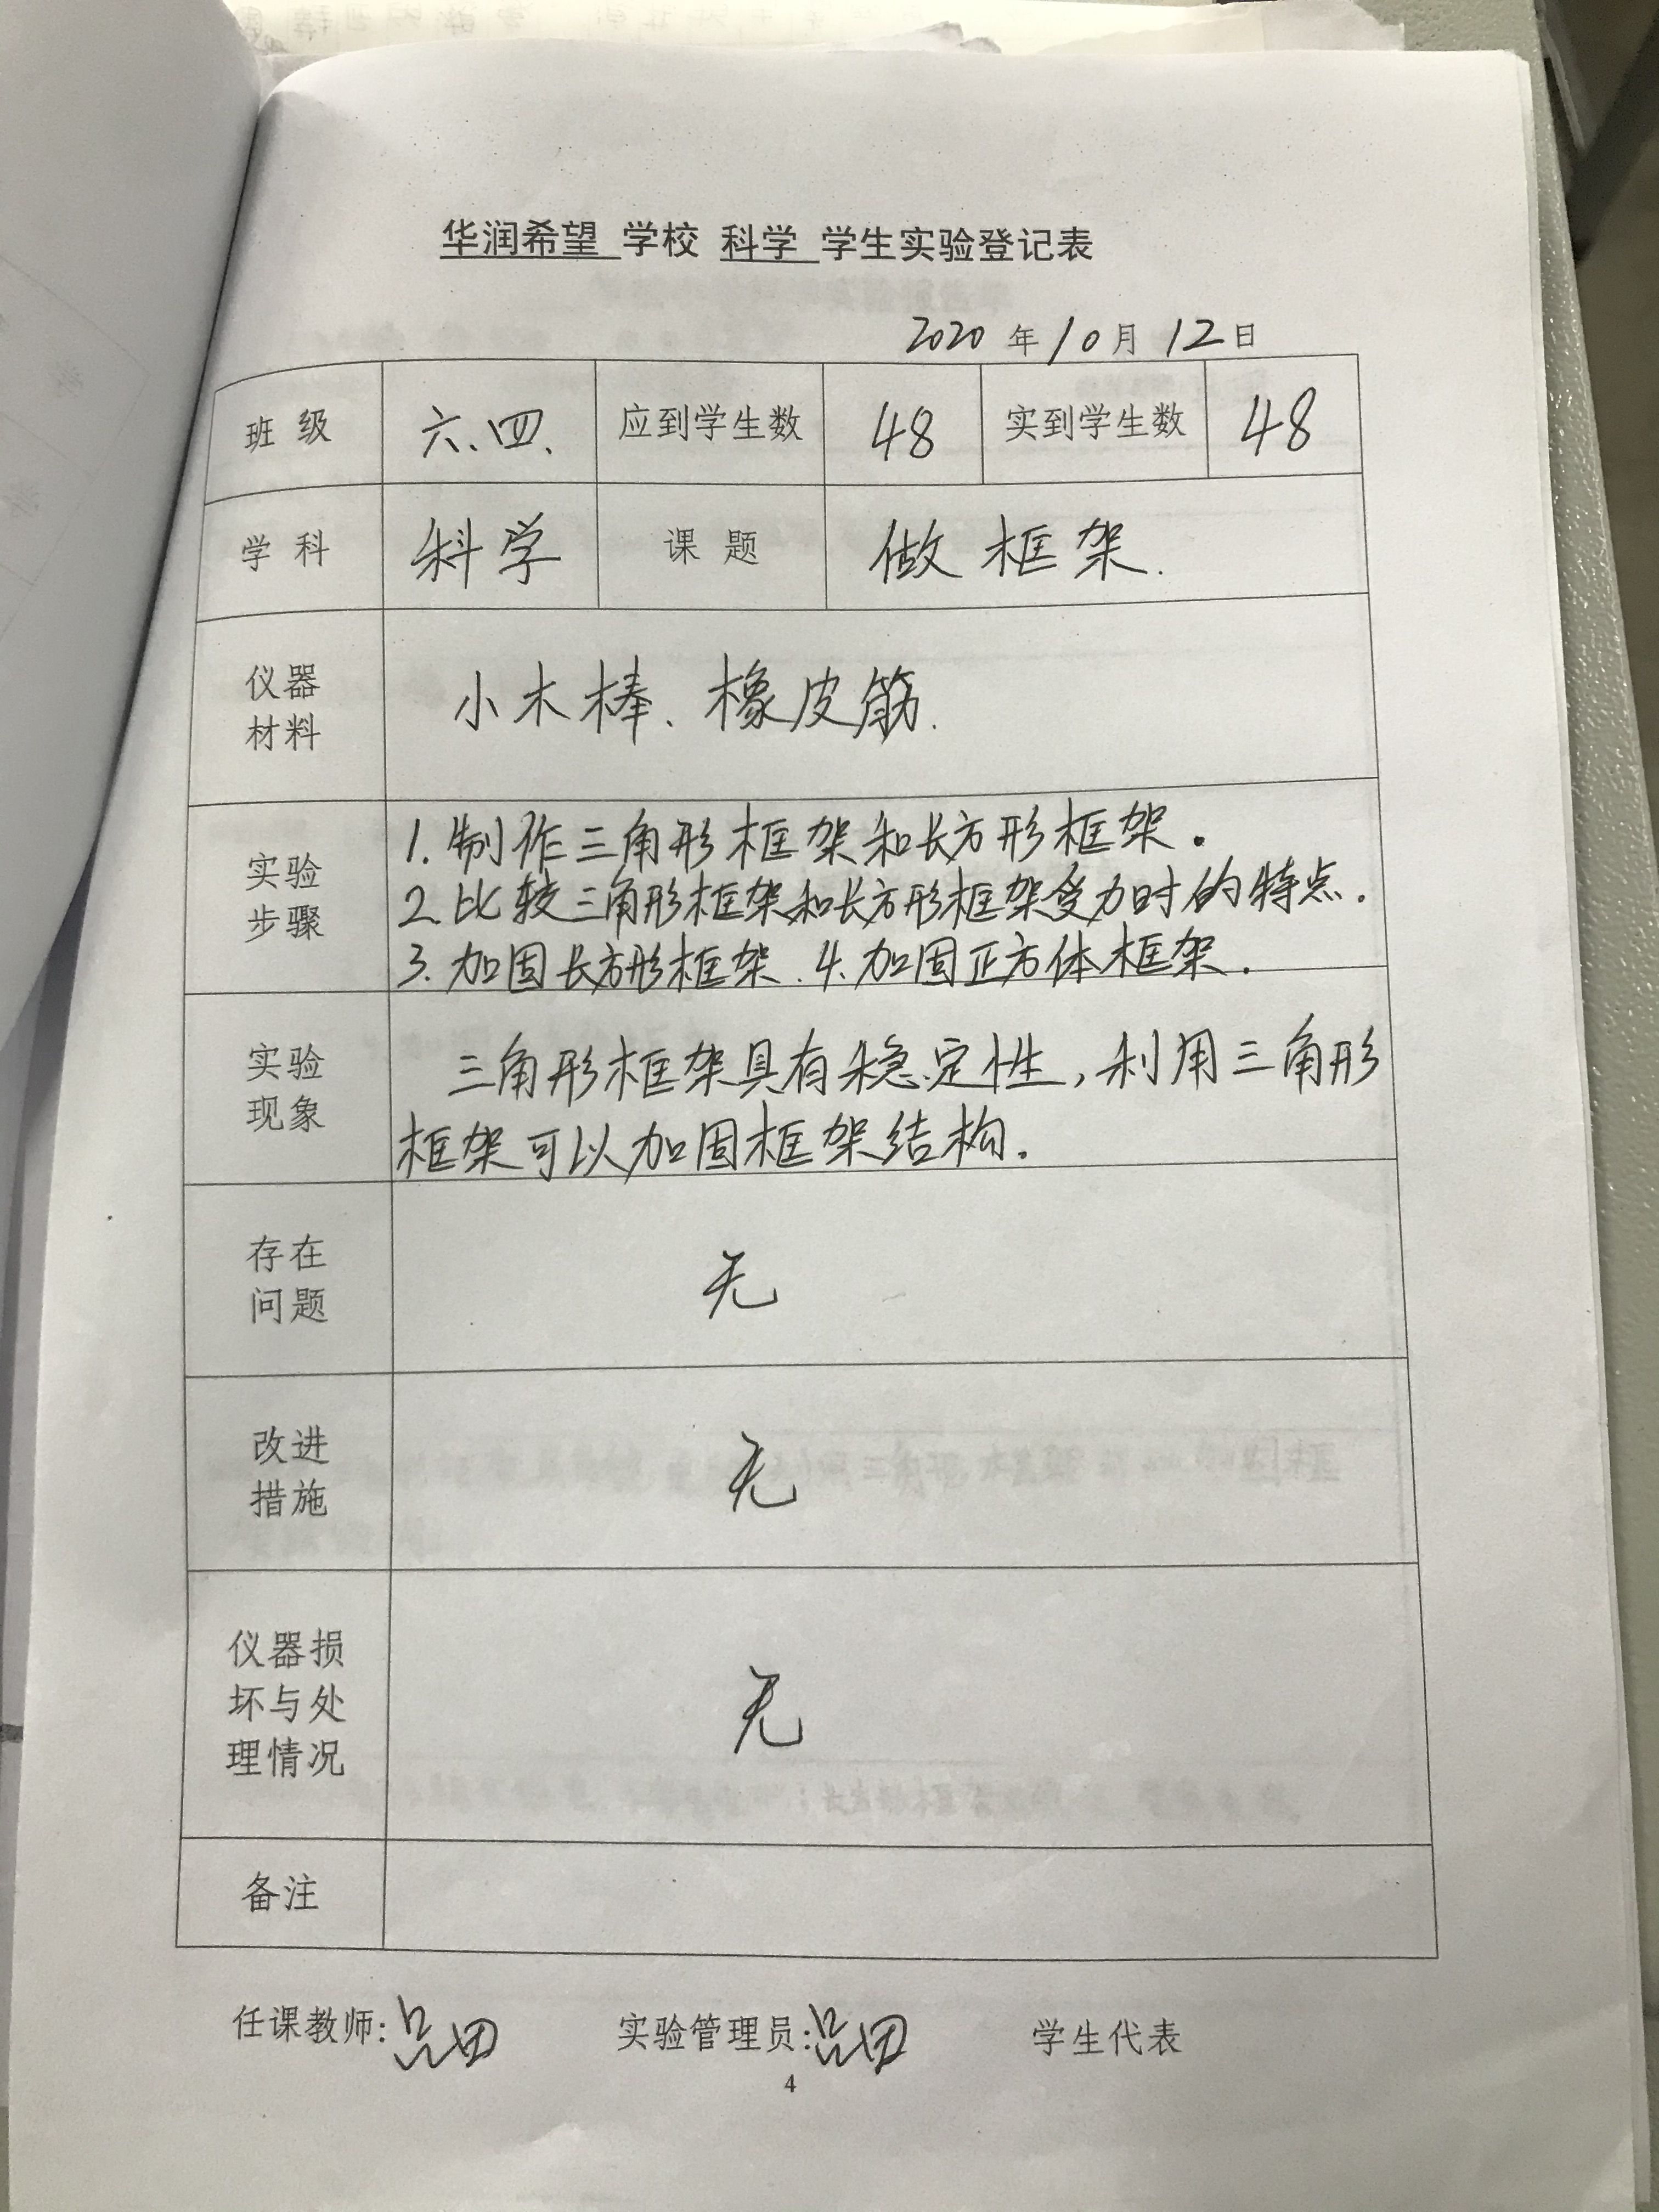 华润希望 学校 科学 学生实验登记表
2020 年 10 月 12 日
班 级 六.四. 应到学生数 48 实到学生数 48
学 科 科学 课 题 做框架.
仪器
材料
小木棒、橡皮筋.
实验
步骤
1. 制作三角形框架和长方形框架.
2. 比较三角形框架和长方形框架受力时的特点.
3. 加固长方形框架. 4. 加固正方体框架.
实验
现象
三角形框架具有稳定性,利用三角形
框架可以加固框架结构.
存在
问题
无
改进
措施
无
仪器损
坏与处
理情况
无
备注
任课教师: 实验管理员: 学生代表
4